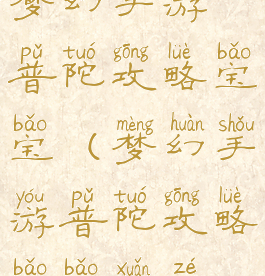 梦幻手游
pǔ tuó gōng lüè bǎo
普陀攻略宝
bǎo mèng huàn shǒu
宝（梦幻手
yóu pǔ tuó gōng lüè
游普陀攻略
bǎo bǎo xuǎn zé